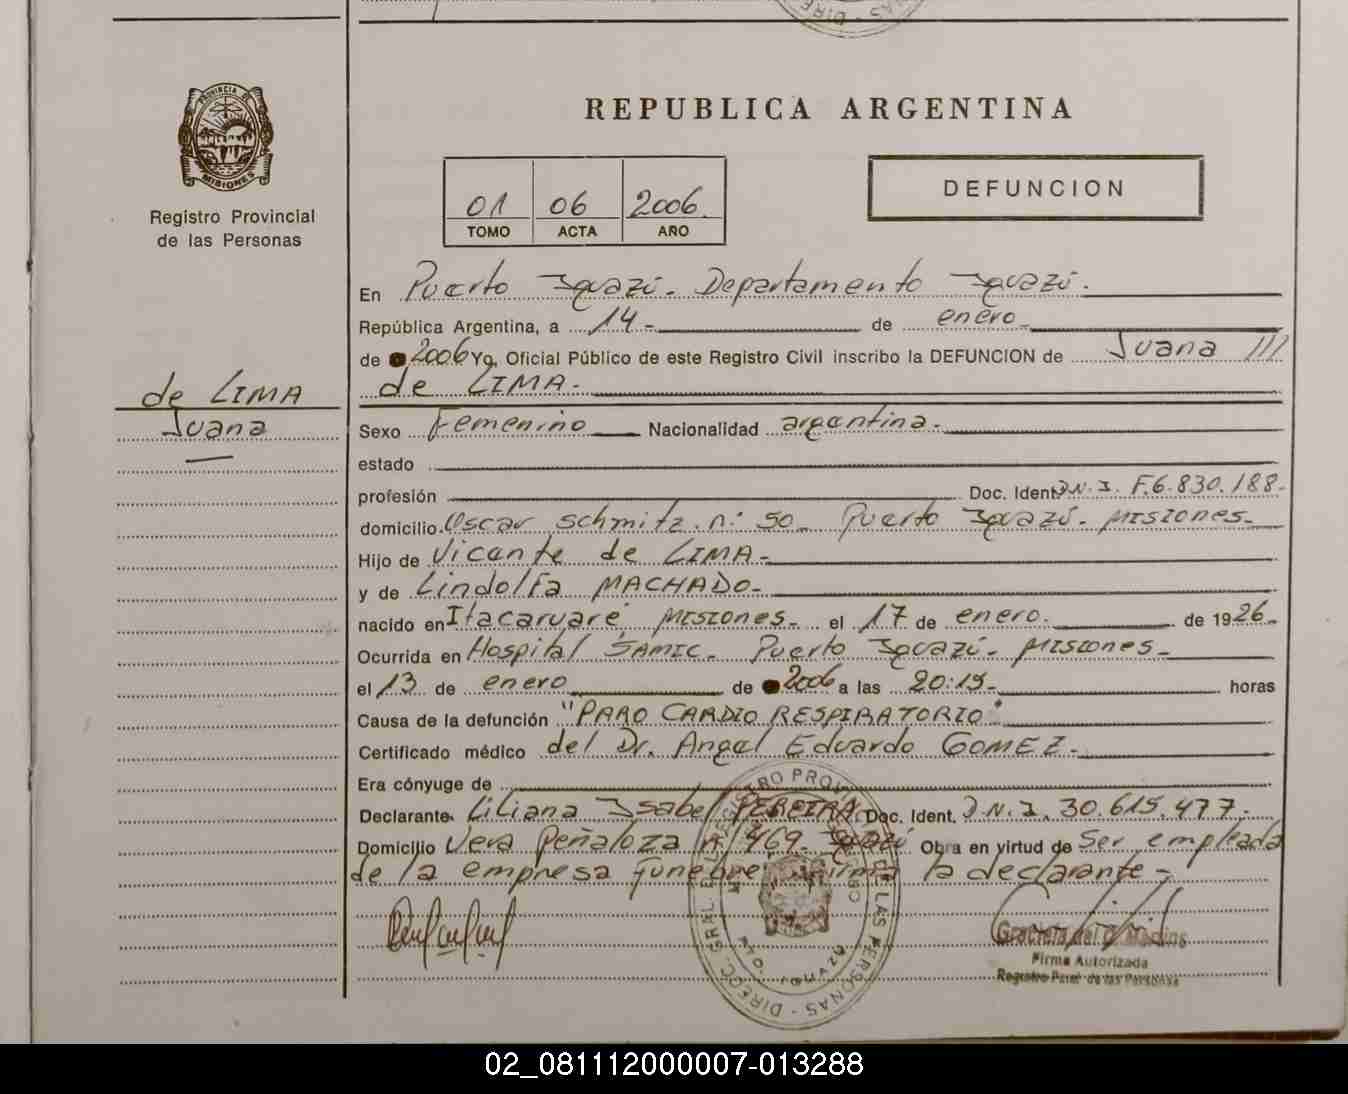 PROVINCIA DE
MISIONES
Registro Provincial
de las Personas
REPUBLICA ARGENTINA
01 06 2006.
TOMO ACTA AÑO
DEFUNCION
En Puerto Iguazú. Departamento Iguazú.
República Argentina, a 14 - de enero
de 2006 Yo, Oficial Público de este Registro Civil inscribo la DEFUNCION de Juana ///
de LIMA.
de LIMA
Juana
Sexo Femenino Nacionalidad argentina.
estado
profesión Doc. Ident. D.N.I. F.6.830.188-
domicilio Oscar Schmitz. n: 50- Puerto Iguazú. MISIONES-
Hijo de Vicente de LIMA-
y de Lindolfa MACHADO-
nacido en Itacaruaré MISIONES- el 17 de enero. de 1926-
Ocurrida en Hospital SAMIC- Puerto Iguazú- MISIONES-
el 13 de enero de 2006 a las 20:15- horas
Causa de la defunción "PARO CARDIO RESPIRATORIO"
Certificado médico del Dr. Angel Eduardo GOMEZ-
Era cónyuge de
Declarante Liliana Isabel PEREIRA Doc. Ident. D.N.I. 30.615.477-
Domicilio Vera Peñaloza n: 469- Iguazú Obra en virtud de Ser empleada
de la empresa funebre firma la declarante-
Graciela del C. Martins
Firma Autorizada
Registro Pcial de las Personas
02_081112000007-013288